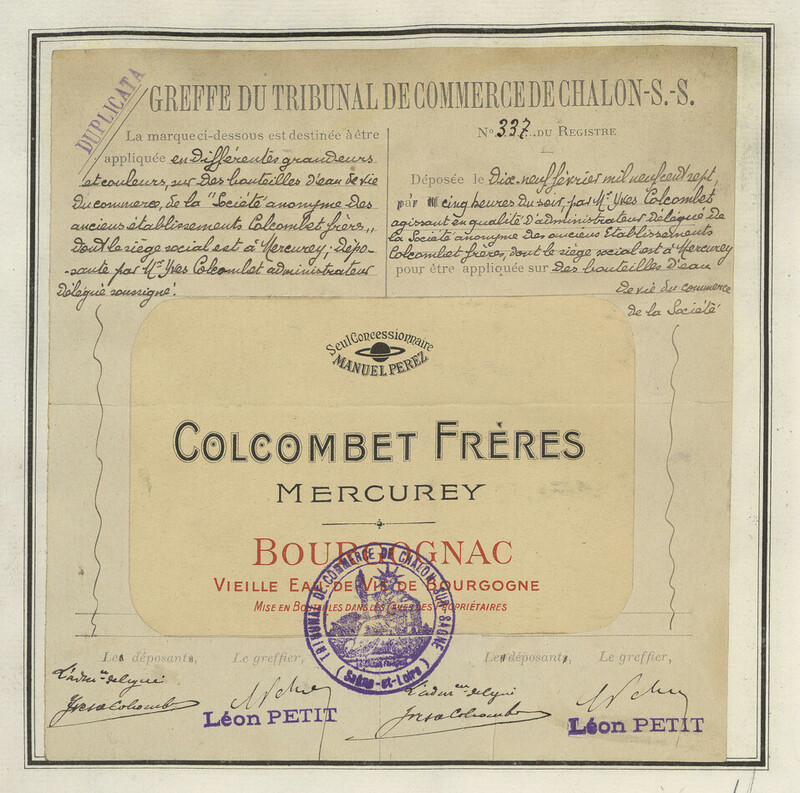 DUPLICATA
GREFFE DU TRIBUNAL DE COMMERCE DE CHALON-S.-S.
La marque ci-dessous est destinée à être
appliquée en différentes grandeurs
et couleurs, sur des bouteilles d'eau de vie
du commerce, de la "Société anonyme des
anciens établissements Colcombet frères,,
dont le siège social est à Mercurey; dépo-
-sante par Mr Yves Colcombet administrateur
délégué soussigné.
No 337 DU REGISTRE
Déposée le Dix-neuf février mil neuf cent sept,
par cinq heures du soir, par Mr Yves Colcombet
agissant en qualité d'administrateur délégué de
la Société anonyme des anciens Etablissements
Colcombet frères, dont le siège social est à Mercurey
pour être appliquée sur des bouteilles d'eau
de vie du commerce
de la Société
Seul Concessionnaire
MANUEL PEREZ
COLCOMBET FRÈRES
MERCUREY
BOURGOGNAC
VIEILLE EAU-DE-VIE DE BOURGOGNE
MISE EN BOUTEILLES DANS LES CAVES DES PROPRIÉTAIRES
TRIBUNAL DE COMMERCE DE CHALON-SUR-SAÔNE
(Saône-et-Loire)
Les déposants, Le greffier,
Les déposants, Le greffier,
Yves Colcombet
Léon PETIT
Yves Colcombet
Léon PETIT